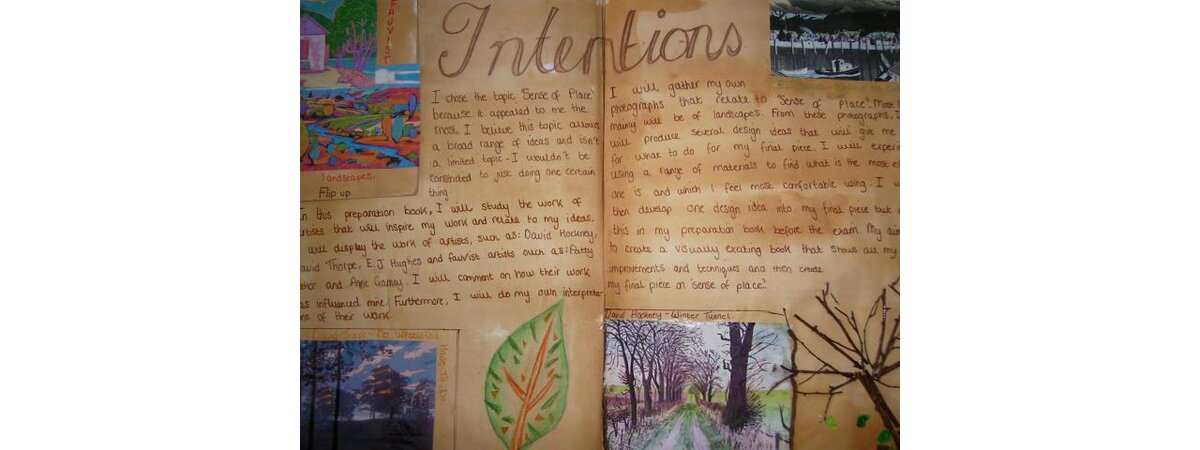 FAUVIST
landscapes.
Flip up
Intentions
I chose the topic 'Sense of Place'
because it appealed to me the
most. I believe this topic allows
a broad range of ideas and isn't
a limited topic - I wouldn't be
constricted to just doing one certain
thing.
In this preparation book, I will study the work of
artists that will inspire my work and relate to my ideas.
will display the work of artists, such as: David Hockney,
David Thorpe, E.J Hughes and fauvist artists such as: Patty
and Anne Garney. I will comment on how their work
as influenced mine. Furthermore, I will do my own interpreta-
ns of their work.
I will gather my own
photographs that relate to 'Sense of Place'. Most
mainly will be of landscapes. From these photographs, I
will produce several design ideas that will give me
for what to do for my final piece. I will experi
using a range of materials to find what is the most e
one is and which I feel most comfortable using. I w
then develop one design idea into my final piece but
this in my preparation book before the exam. My aim
to create a visually exciting book that shows all my
improvements and techniques and then create
my final piece on 'sense of place'.
David Thorpe - Do What You
Have To Do
David Hockney - Winter Tunnel.